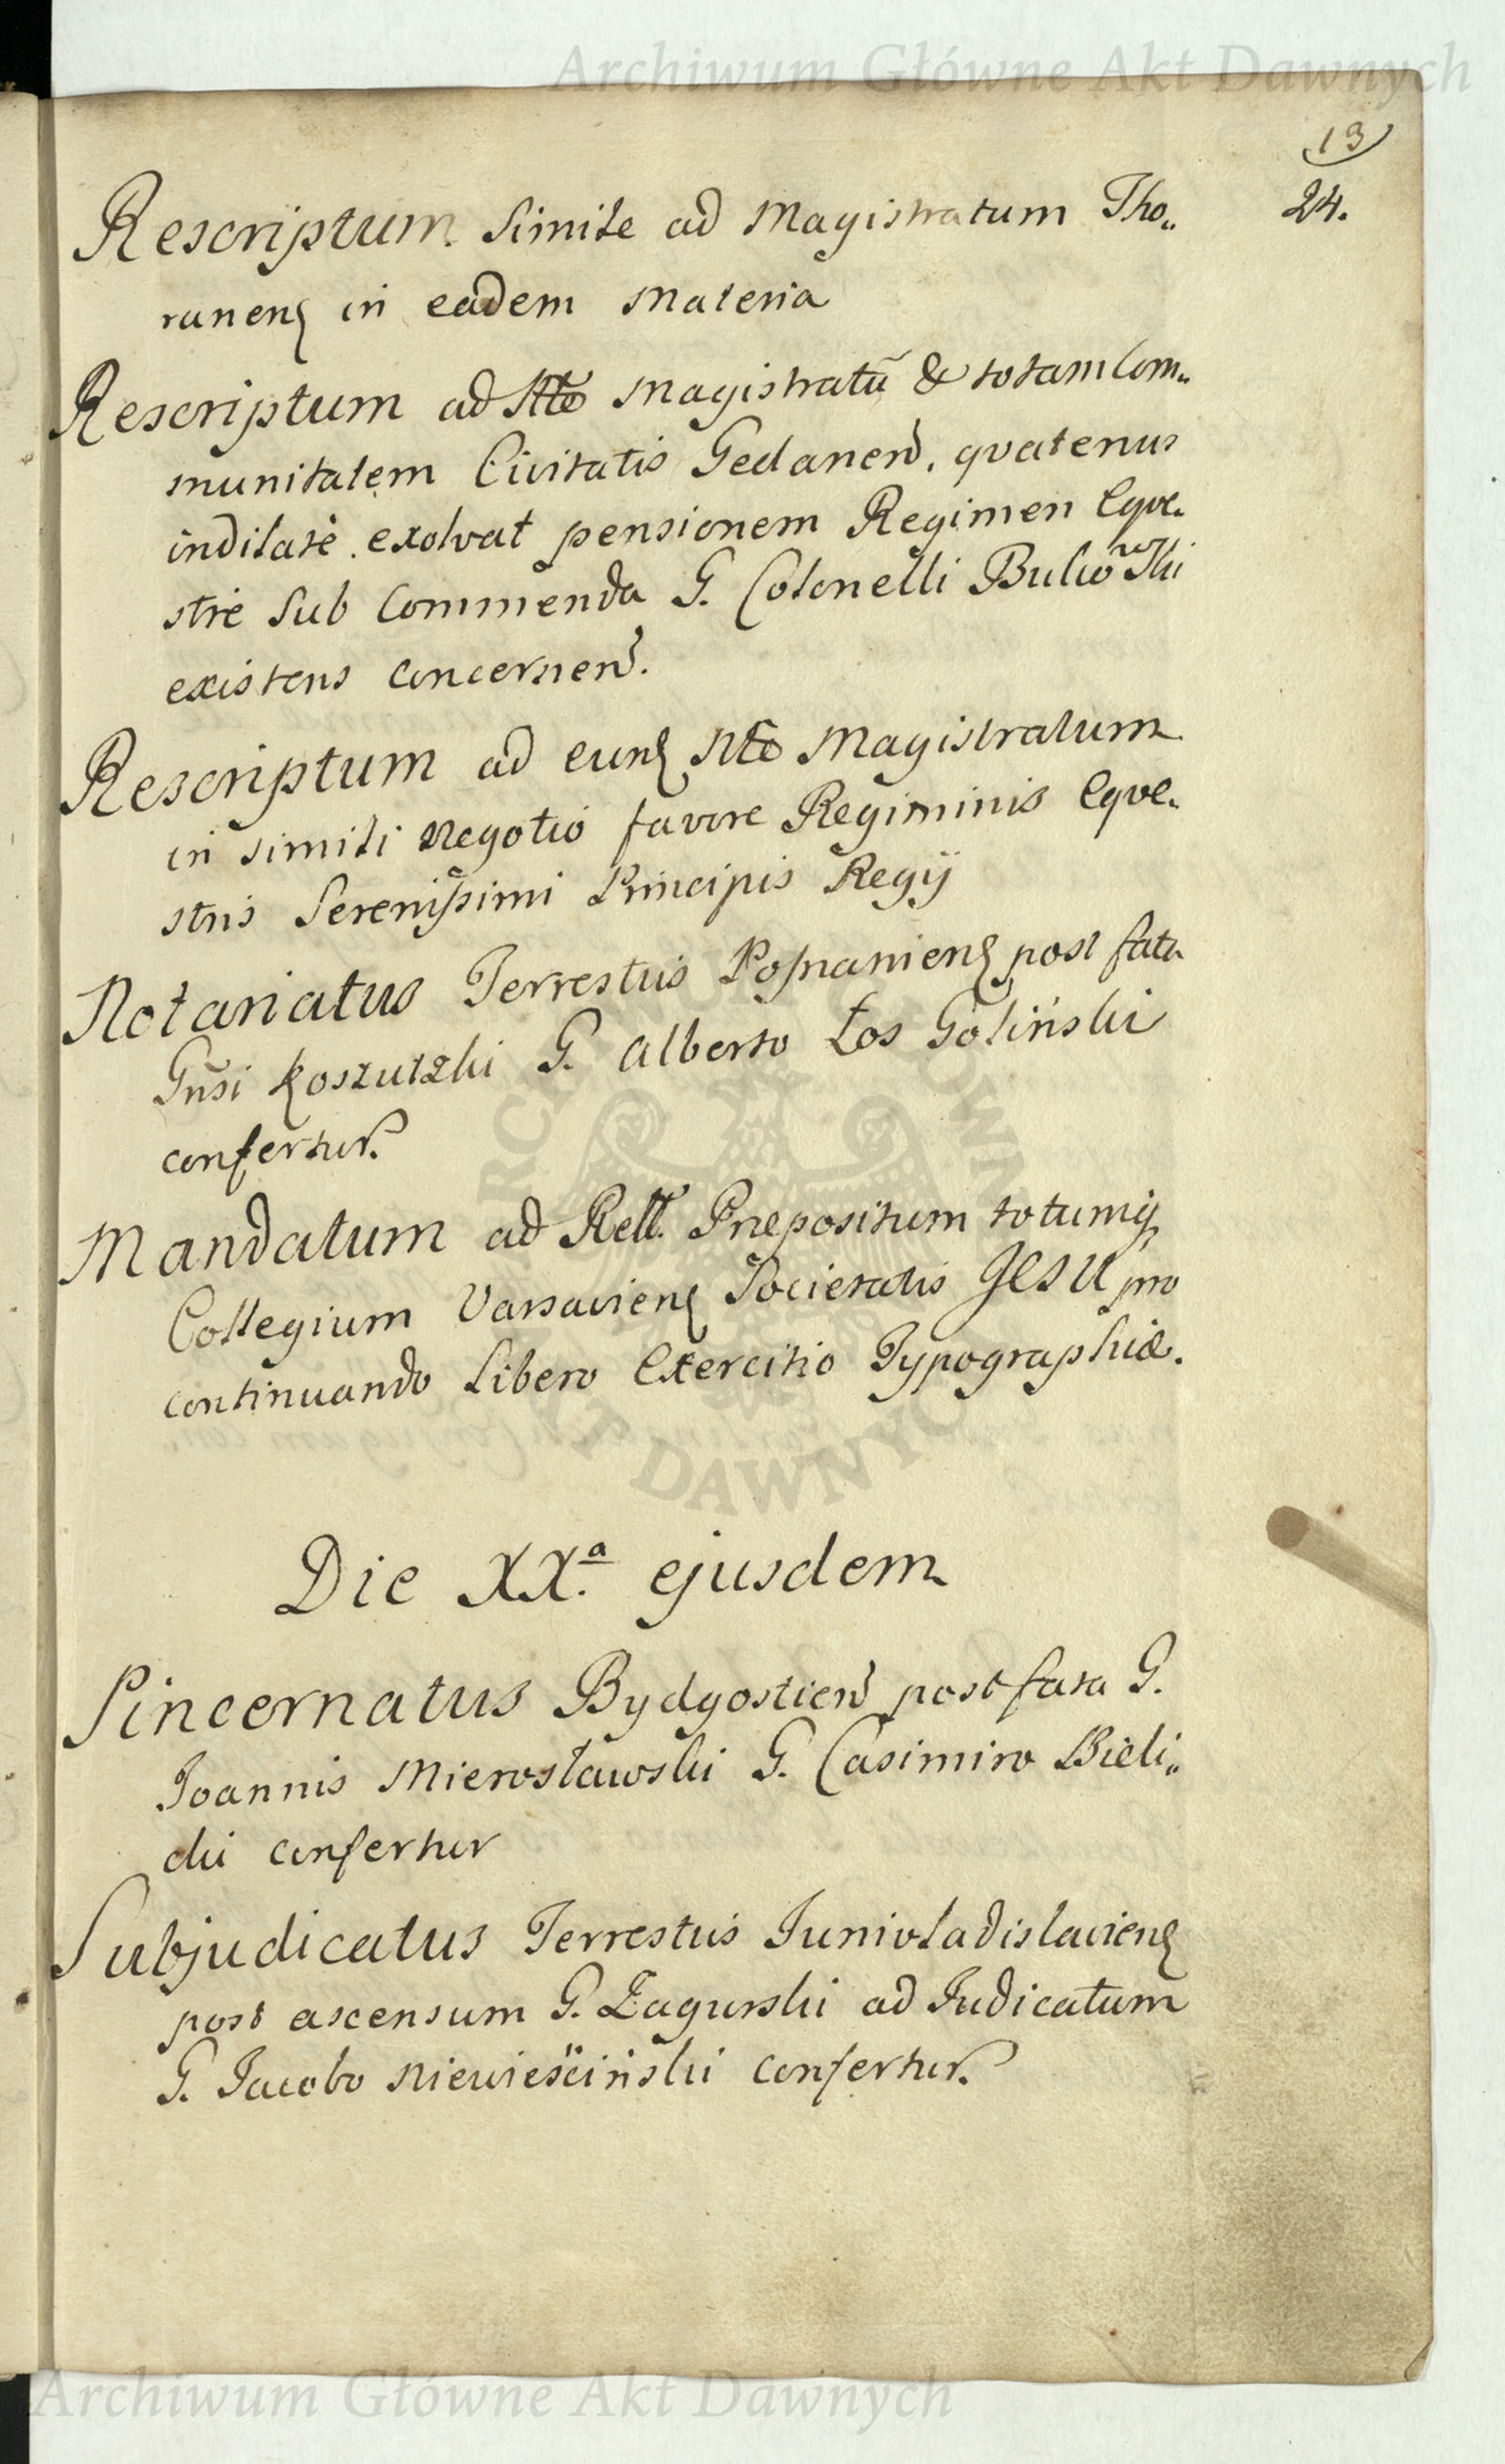 Archiwum Główne Akt Dawnych
13
24.
Rescriptum Simile ad Magistratum Tho„
runens in eadem Materia
Rescriptum ad Magistratũ & totam Com„
munitatem Civitatis Gedanen, qvatenus
indilatè exolvat pensionem Regimen Eqve„
stre sub Commenda G. Colonelli
existens concernen.
Rescriptum ad eund Magistratum
in simili Negotio favore Regiminis Eqve„
stris Serenissimi Principis Regij
Notariatus Terrestris Posnaniens post fata
Gñsi Koszutzki G. Alberto Łos Goliński
confertur.
Mandatum ad Rell. Præpositum totumq̨
Collegium Varsaviens Societatis JESU pro
continuando Libero Exercitio Typographiæ.
ARCHIWUM GŁÓWNE AKT DAWNYCH
Die XX.ª ejusdem
Pincernatus Bydgostien post fata G.
Joannis Mierosławski G. Casimiro Bieli„
cki confertur
Subjudicatus Terrestris Junivladislaviens
post ascensum G. Zagurski ad Judicatum
G. Jacobo Niewieściński confertur.
Archiwum Główne Akt Dawnych